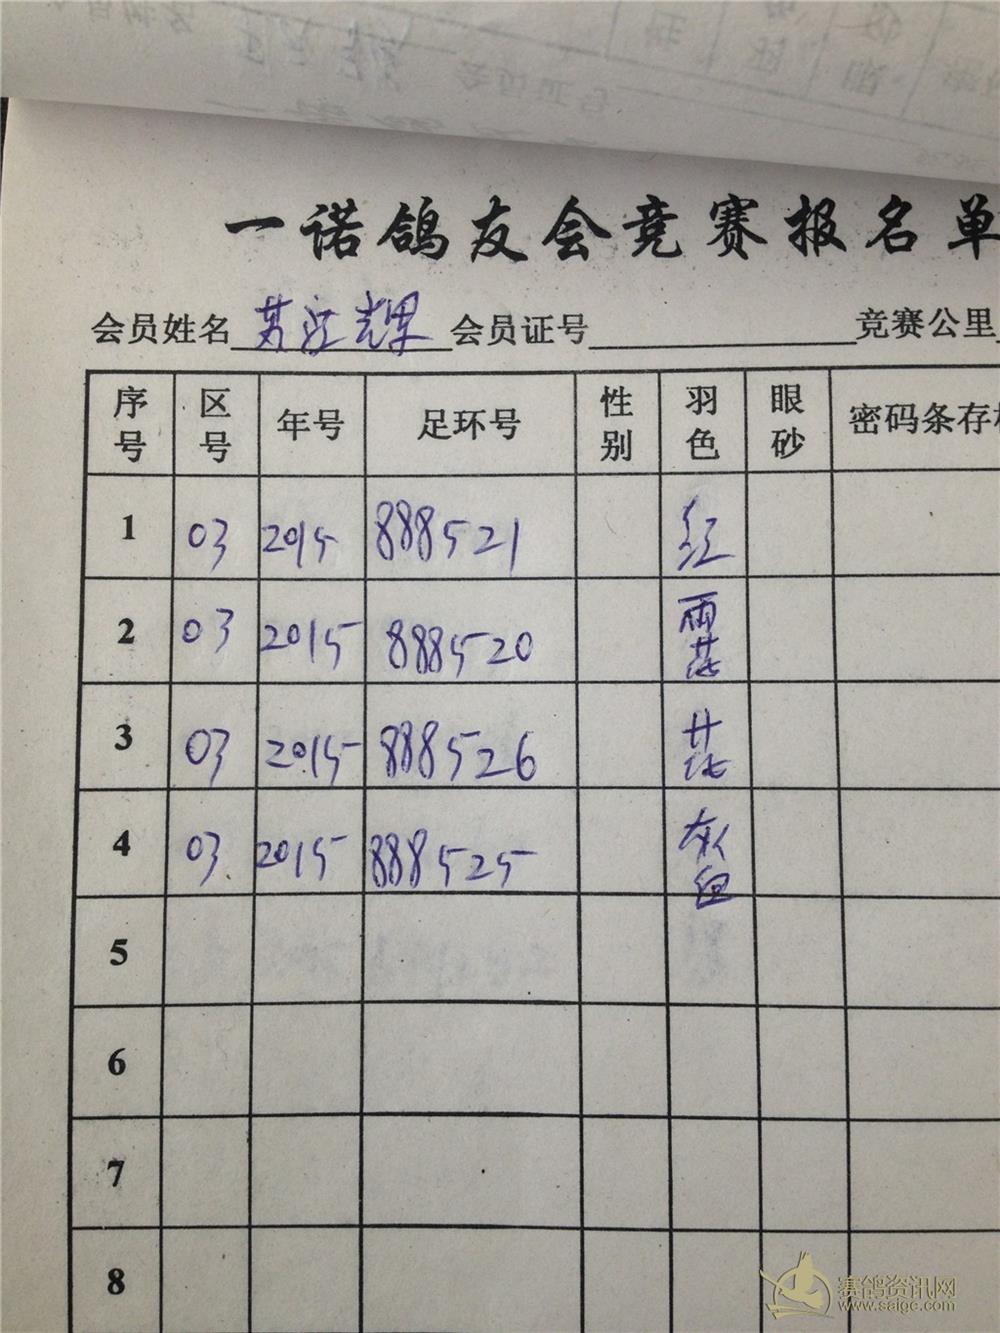 一诺鸽友会竞赛报名单
会员姓名 会员证号 竞赛公里
序号 区号 年号 足环号 性别 羽色 眼砂 密码条存
1 03 2015 888521 红
2 03 2015 888520 雨花
3 03 2015 888526 花
4 03 2015 888525 灰
5
6
7
8
赛鸽资讯网
www.saigc.com